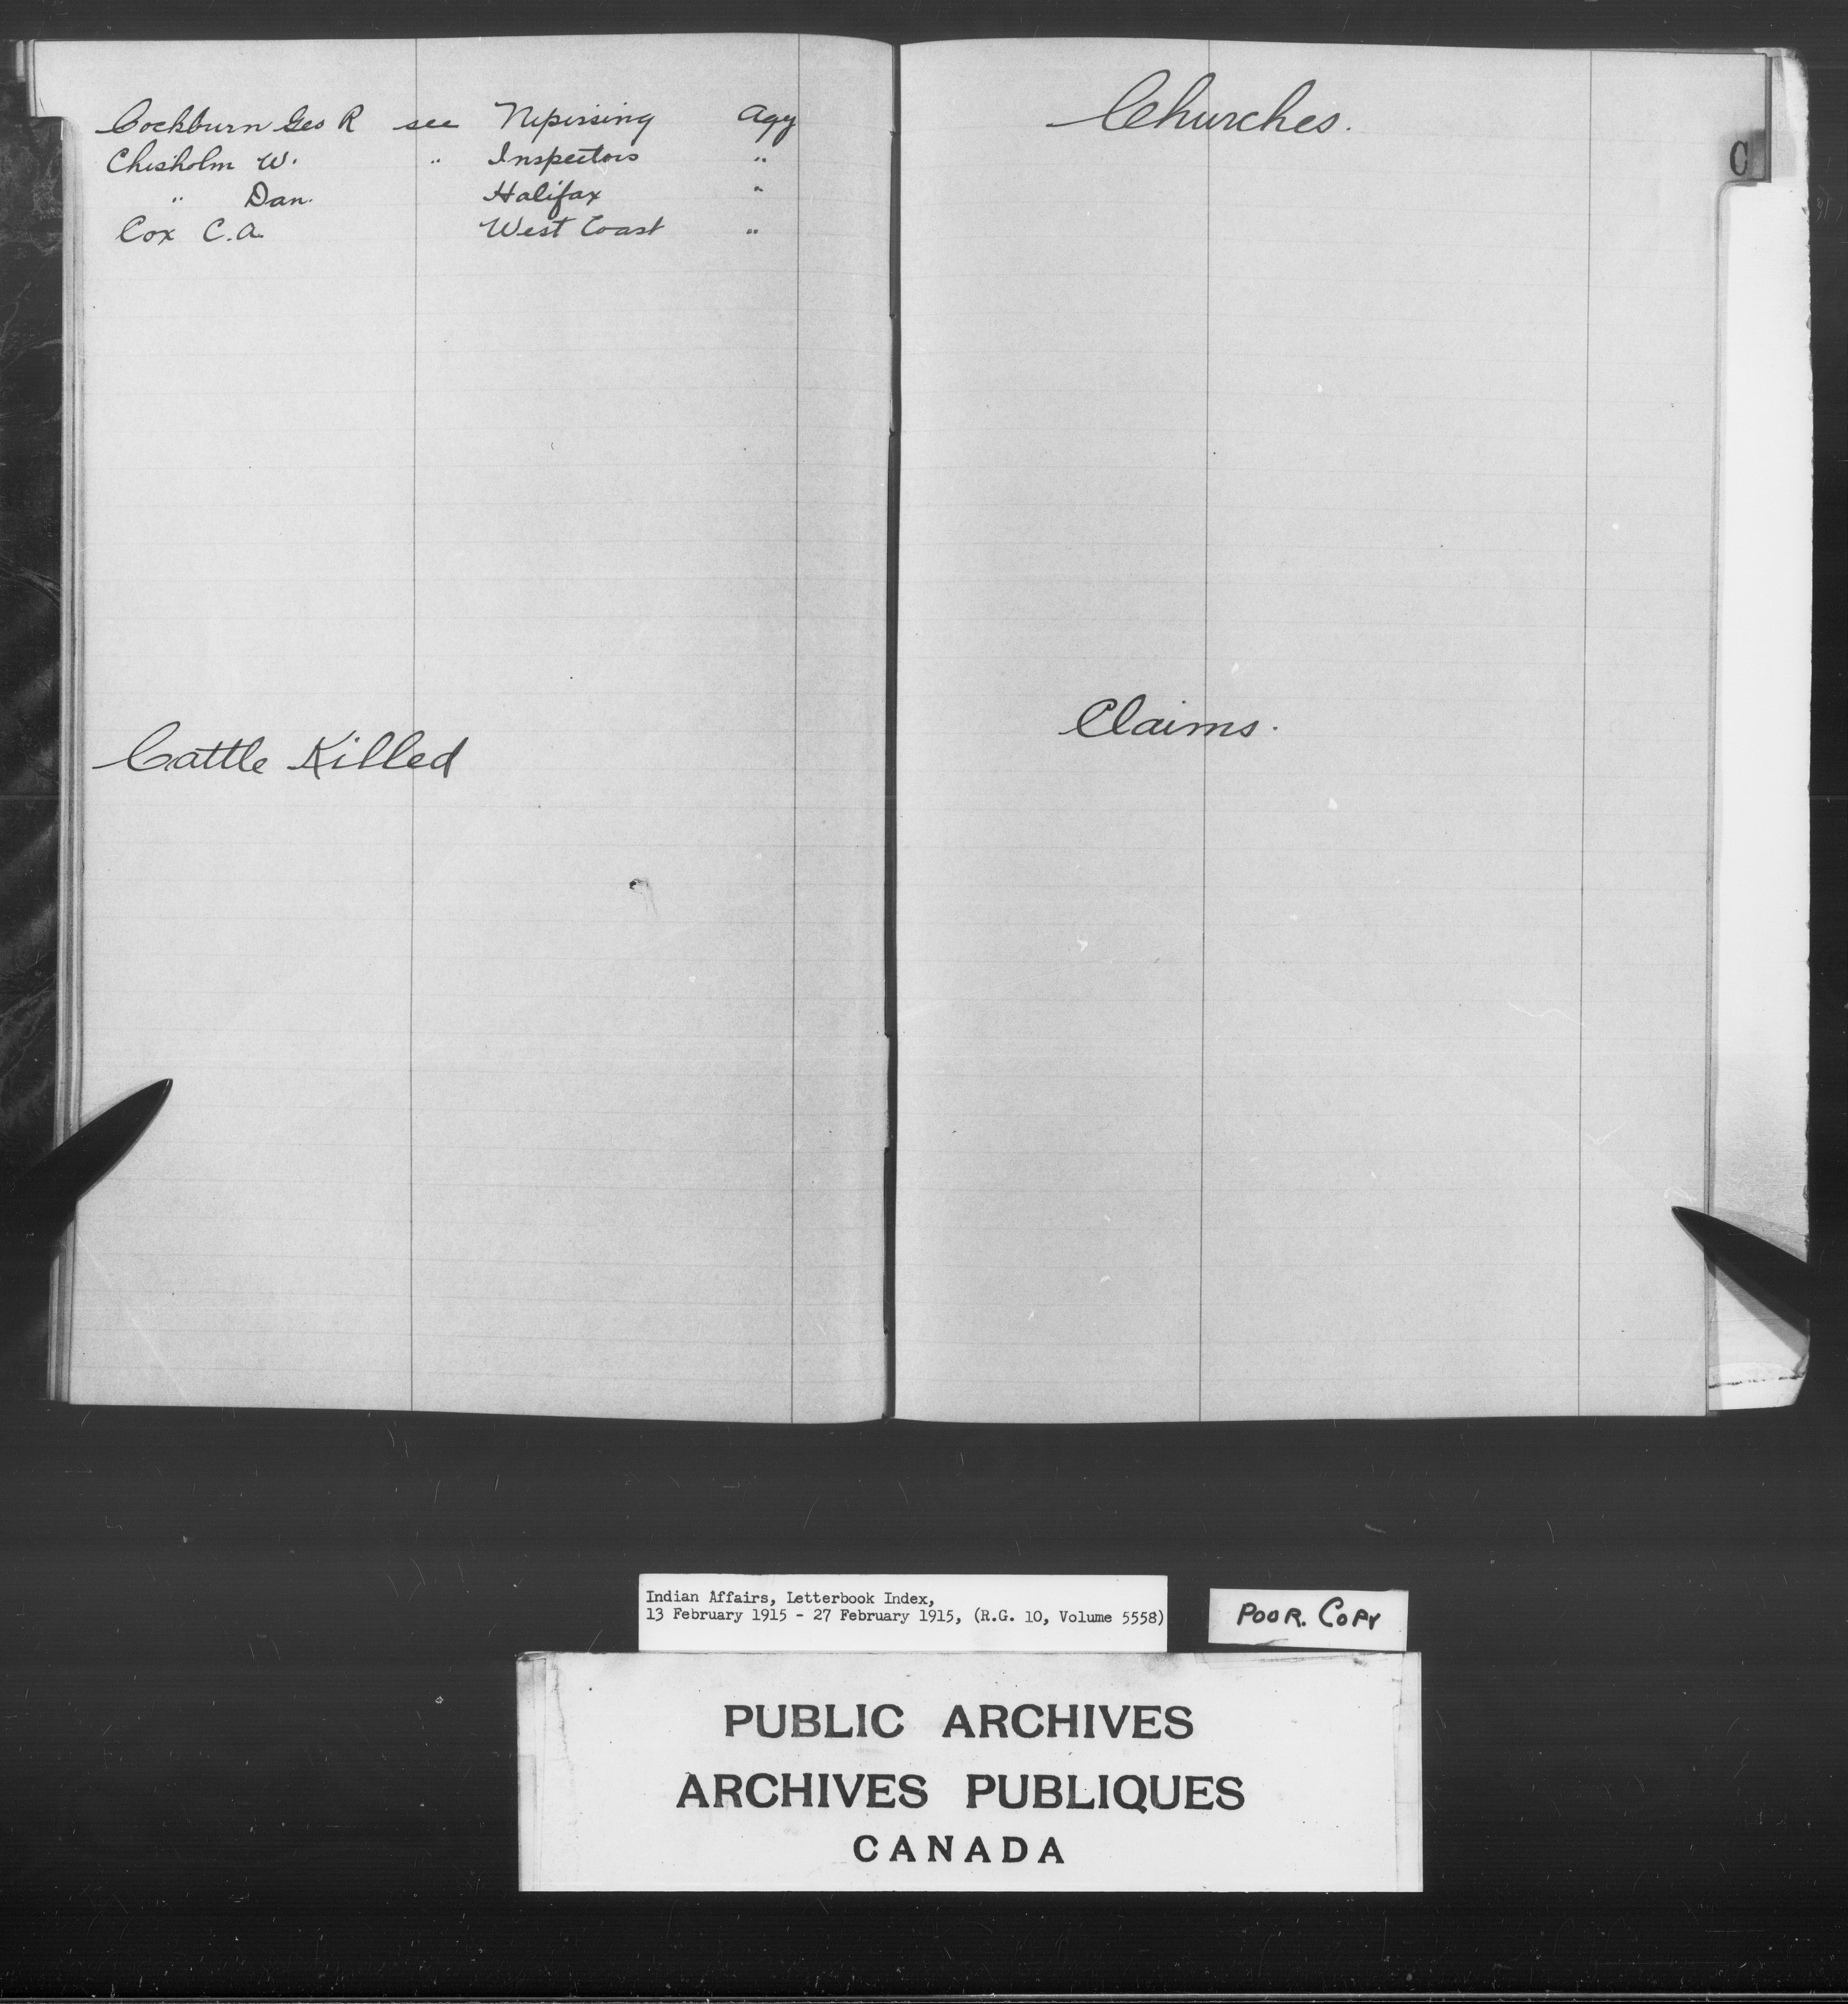 Cockburn Geo R see Nipissing Agy
Chisholm W. " Inspectors "
" Dan. Halifax "
Cox C.A. West Coast "
Cattle Killed
Churches.
C
Claims.
Indian Affairs, Letterbook Index,
13 February 1915 - 27 February 1915, (R.G. 10, Volume 5558)
POOR. COPY
PUBLIC ARCHIVES
ARCHIVES PUBLIQUES
CANADA